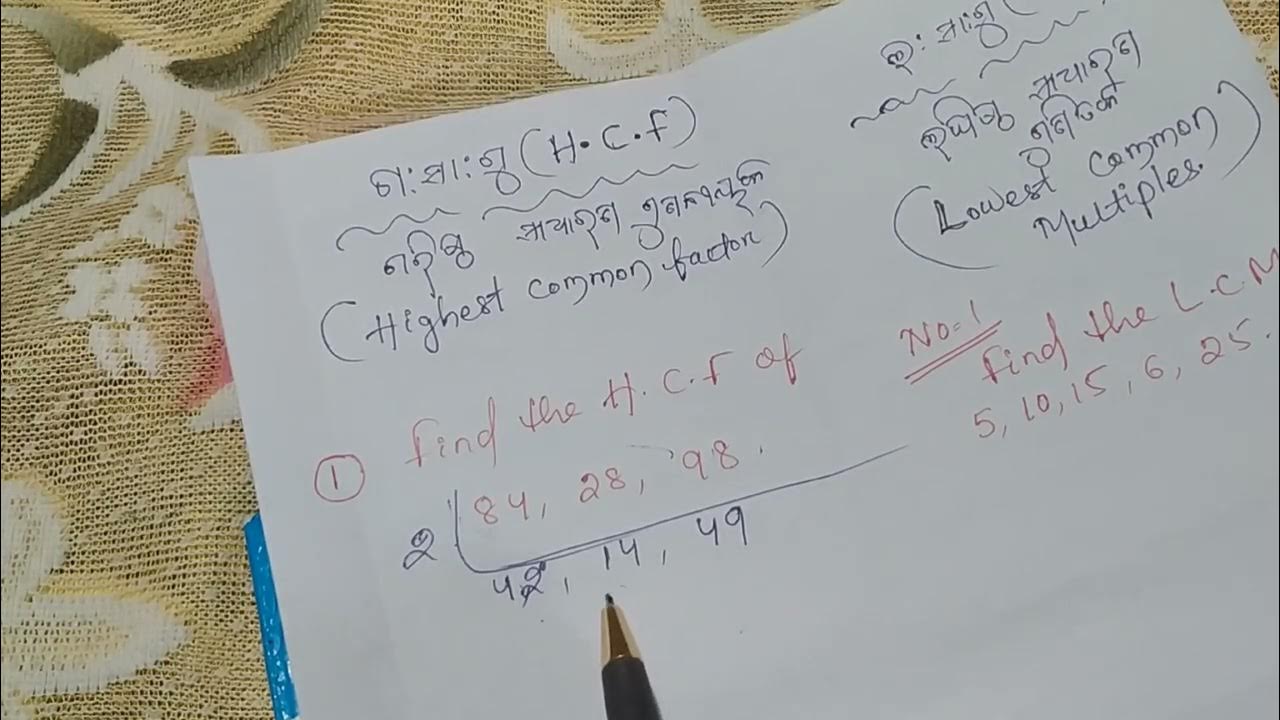 ଗ.ସା.ଗୁ (H.C.F)
ଗରିଷ୍ଠ ସାଧାରଣ ଗୁଣନୀୟକ
(Highest common factor)
① find the H.C.F of
84, 28, 98.
2
42, 14, 49
ଲ.ସା.ଗୁ (
ଲଘିଷ୍ଠ ସାଧାରଣ
ଗୁଣିତକ
(Lowest common
Multiples.)
No=1
find the L.C.M
5, 10, 15, 6, 25.